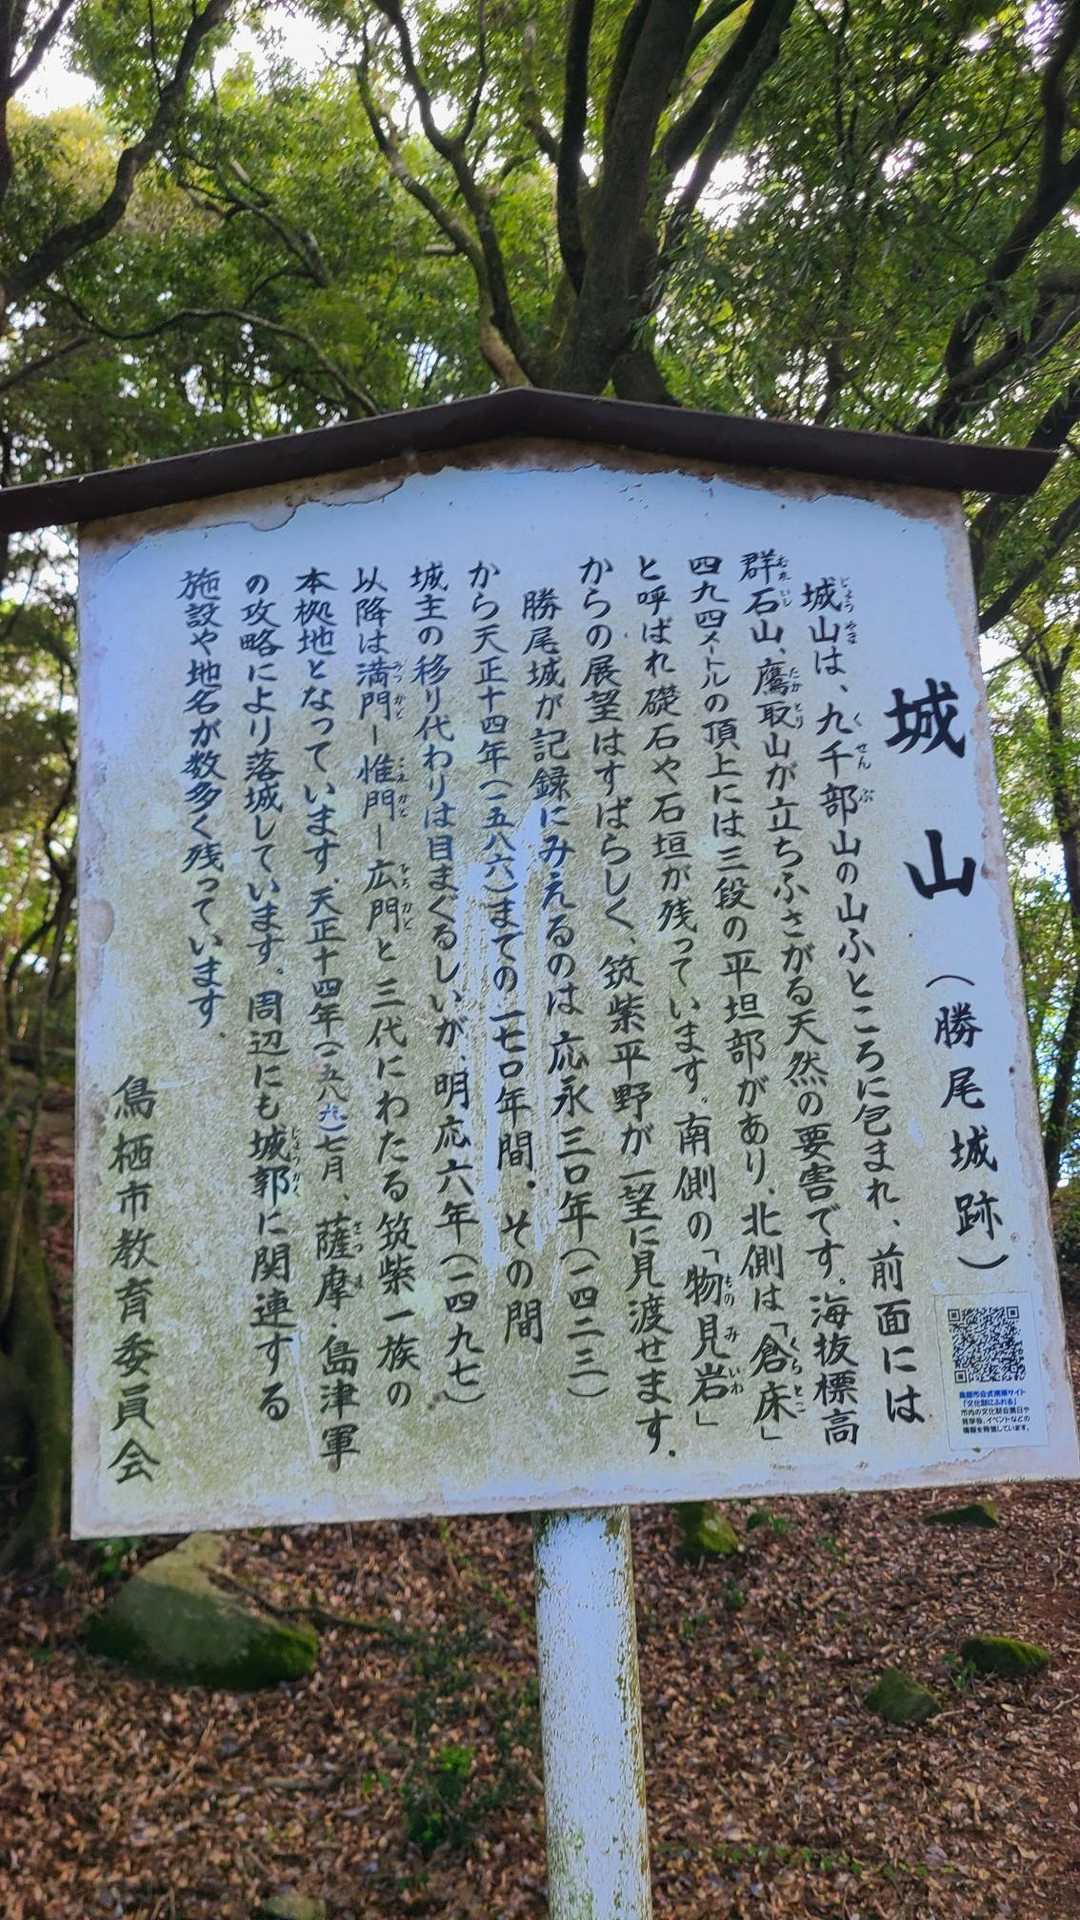 城山（勝尾城跡）
城山は、九千部山の山ふところに包まれ、前面には
群石山、鷹取山が立ちふさがる天然の要害です。海抜標高
四九四メートルの頂上には三段の平坦部があり、北側は「倉床」
と呼ばれ礎石や石垣が残っています。南側の「物見岩」
からの展望はすばらしく、筑紫平野が一望に見渡せます。
勝尾城が記録にみえるのは応永三〇年（一四二三）
から天正十四年（一五八六）までの一七〇年間。その間
城主の移り代わりは目まぐるしいが、明応六年（一四九七）
以降は満門ー惟門ー広門と三代にわたる筑紫一族の
本拠地となっています。天正十四年（一五八六）七月、薩摩・島津軍
の攻略により落城しています。周辺にも城郭に関連する
施設や地名が数多く残っています。
鳥栖市教育委員会
鳥栖市公式携帯サイト
「文化財にふれる」
市内の文化財公開日や
見学会、イベントなどの
情報を発信しています。